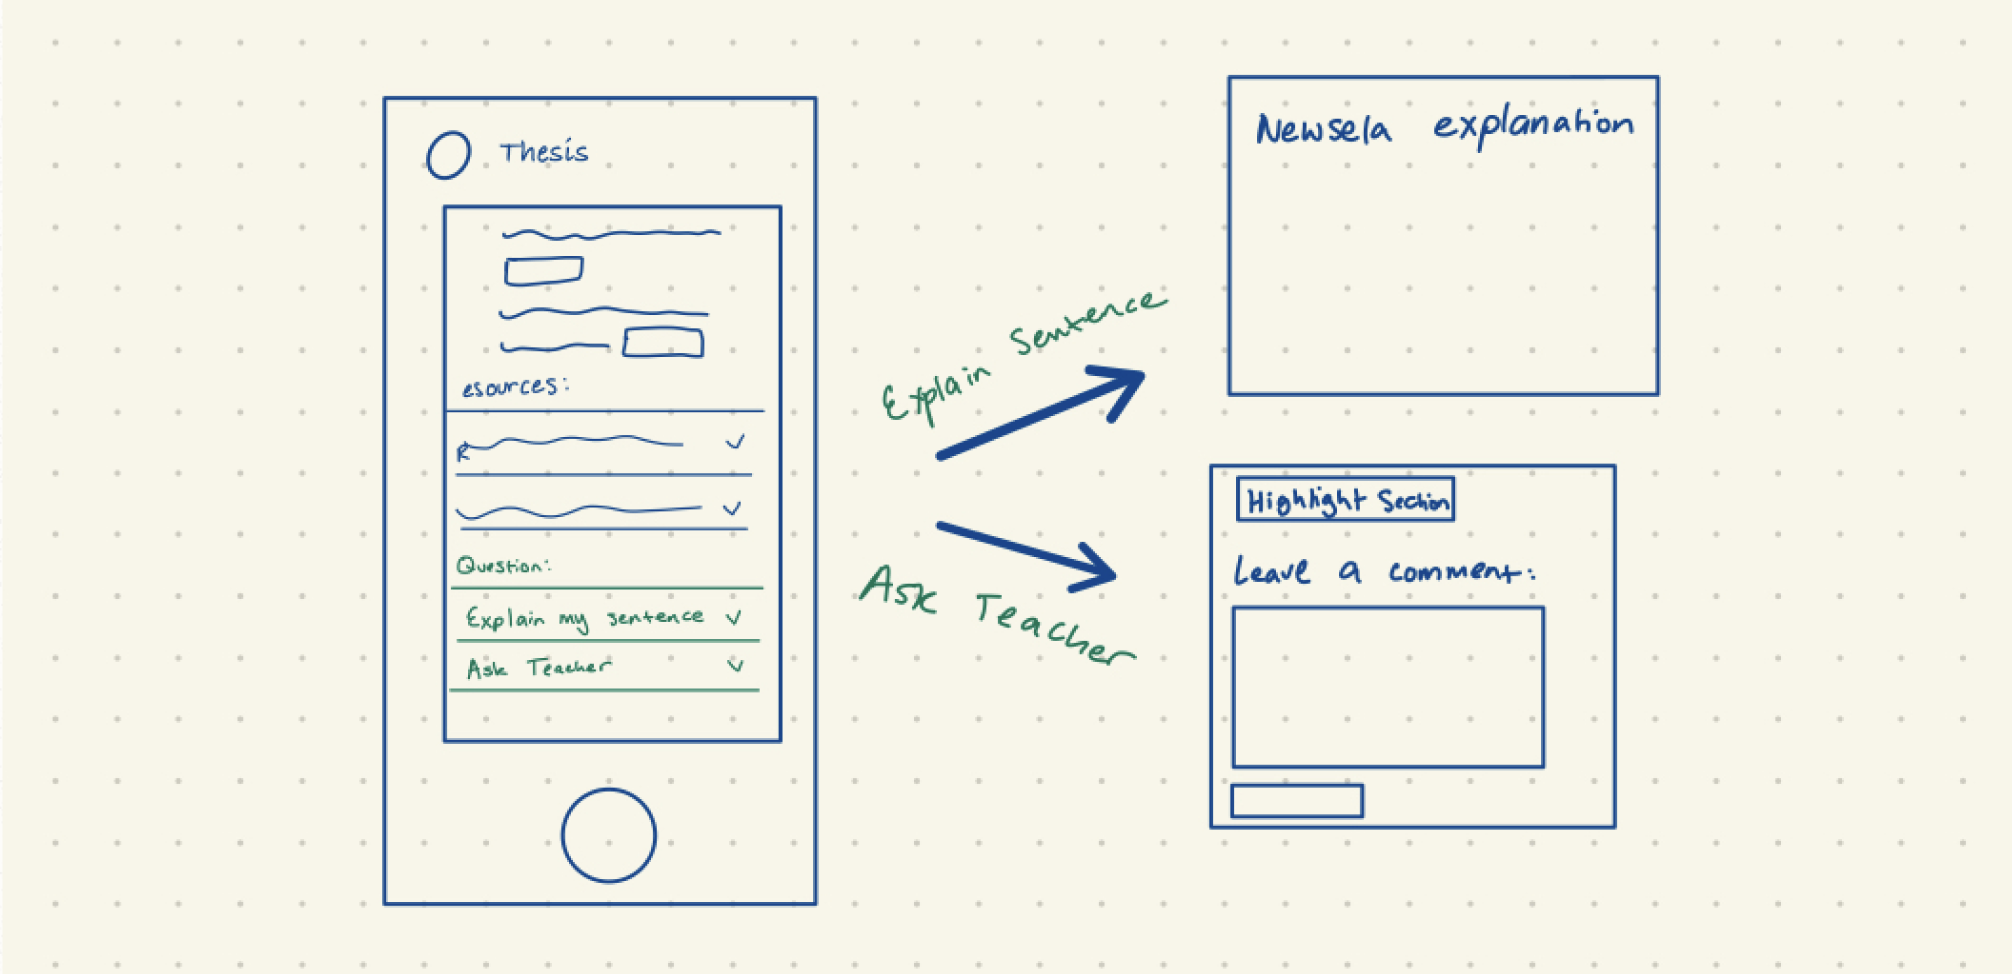 Thesis
esources:
R
Question:
Explain my sentence
Ask Teacher
Explain Sentence
Ask Teacher
Newsela explanation
Highlight Section
Leave a comment: